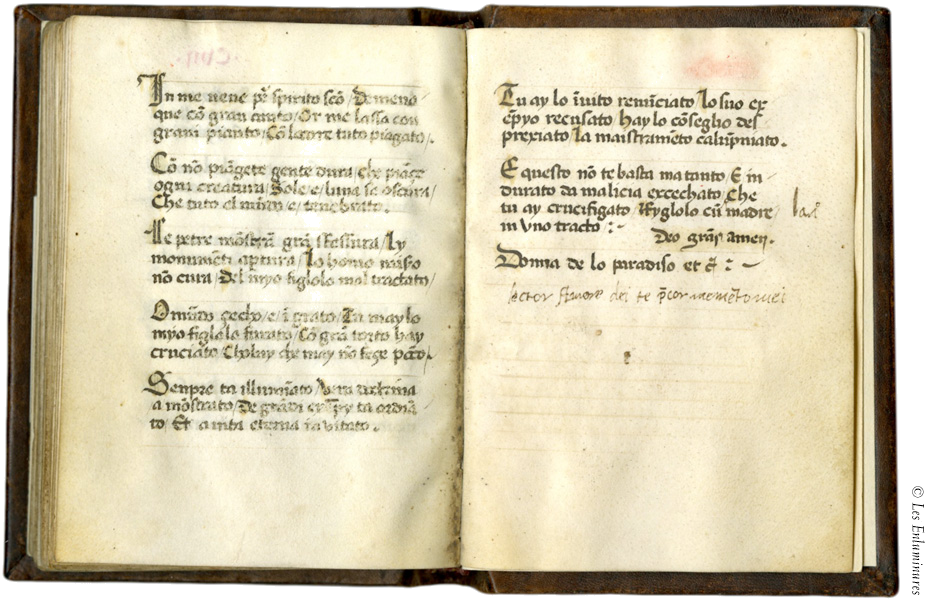 In me uene per spirito scõ / De meno
que cõ gran / Or me lassa con
grani pianto / Cõ lo core tuto piagato /.
Cõ nõ piãgete gente dura / che piãge
ogni creatura / Sole / e / luna se oscura /
Che tuto el mũdo / e / tenebrato .
Le petre mõstrã grã / Ly
monumẽti aptura / Lo homo
nõ cura / Del myo figlolo mal tractato /
O mũdo cecho / e / ĩ grato / Tu may lo
myo figlolo furato / Cõ grã torto hay
cruciato / che may nõ fege
Senpre ta illumĩato / doctrina
a mõstrato / De grãdi ta ordĩa
to / Et a uita eterna ta ĩuitato .
Tu ay lo ĩuito renũciato / Lo suo ex
ẽpyo recusato / hay lo cõseglio des
prexiato / la maistramẽto calũpniato .
E questo nõ te basta ma tanto / E in
durato da malicia excechato / Che
tu ay crucifigato / figlolo cũ madre /
in vno tracto / :~
Deo grãs amen .
Donna de lo paradiso et c̃ :~
lector amore dei te p̃cor memẽto mei
© Les Enluminures